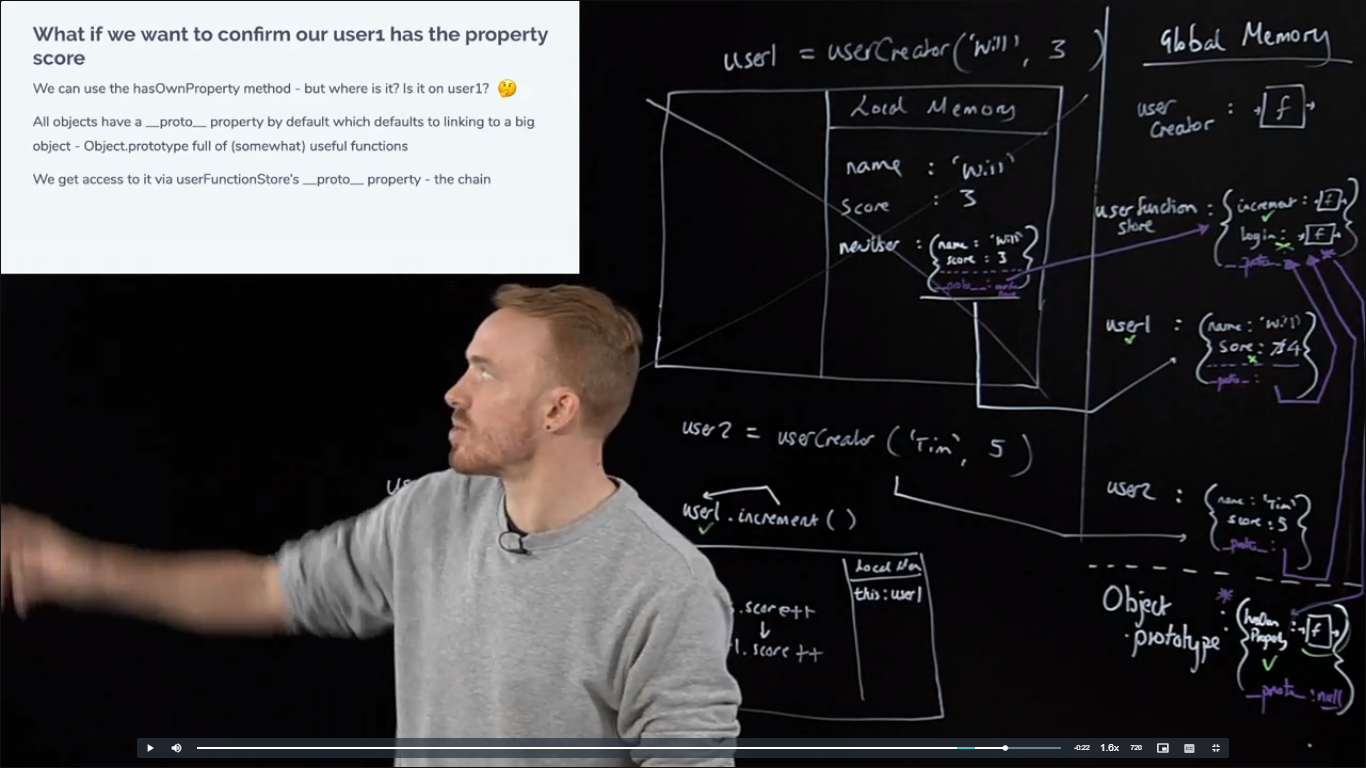 What if we want to confirm our user1 has the property
score
We can use the hasOwnProperty method - but where is it? Is it on user1? 🤔
All objects have a __proto__ property by default which defaults to linking to a big
object - Object.prototype full of (somewhat) useful functions
We get access to it via userFunctionStore's __proto__ property - the chain
user1 = userCreator('Will', 3)
Local Memory
name : 'Will'
score : 3
newUser : {name : 'Will'
score : 3
__proto__ :
user2 = userCreator('Tim', 5)
user1.increment()
Local Mem
this: user1
.score++
1.score++
Global Memory
user
Creator : f
user function
store : {increment : f
login : f
__proto__
user1 : {name : 'Will'
Score: 4}
__proto__ :
user2 : {name : 'Tim'
score : 5}
__proto__ :
Object
.prototype : {hasOwn
Property : f
__proto__ : null}
-0:22 1.6x 720